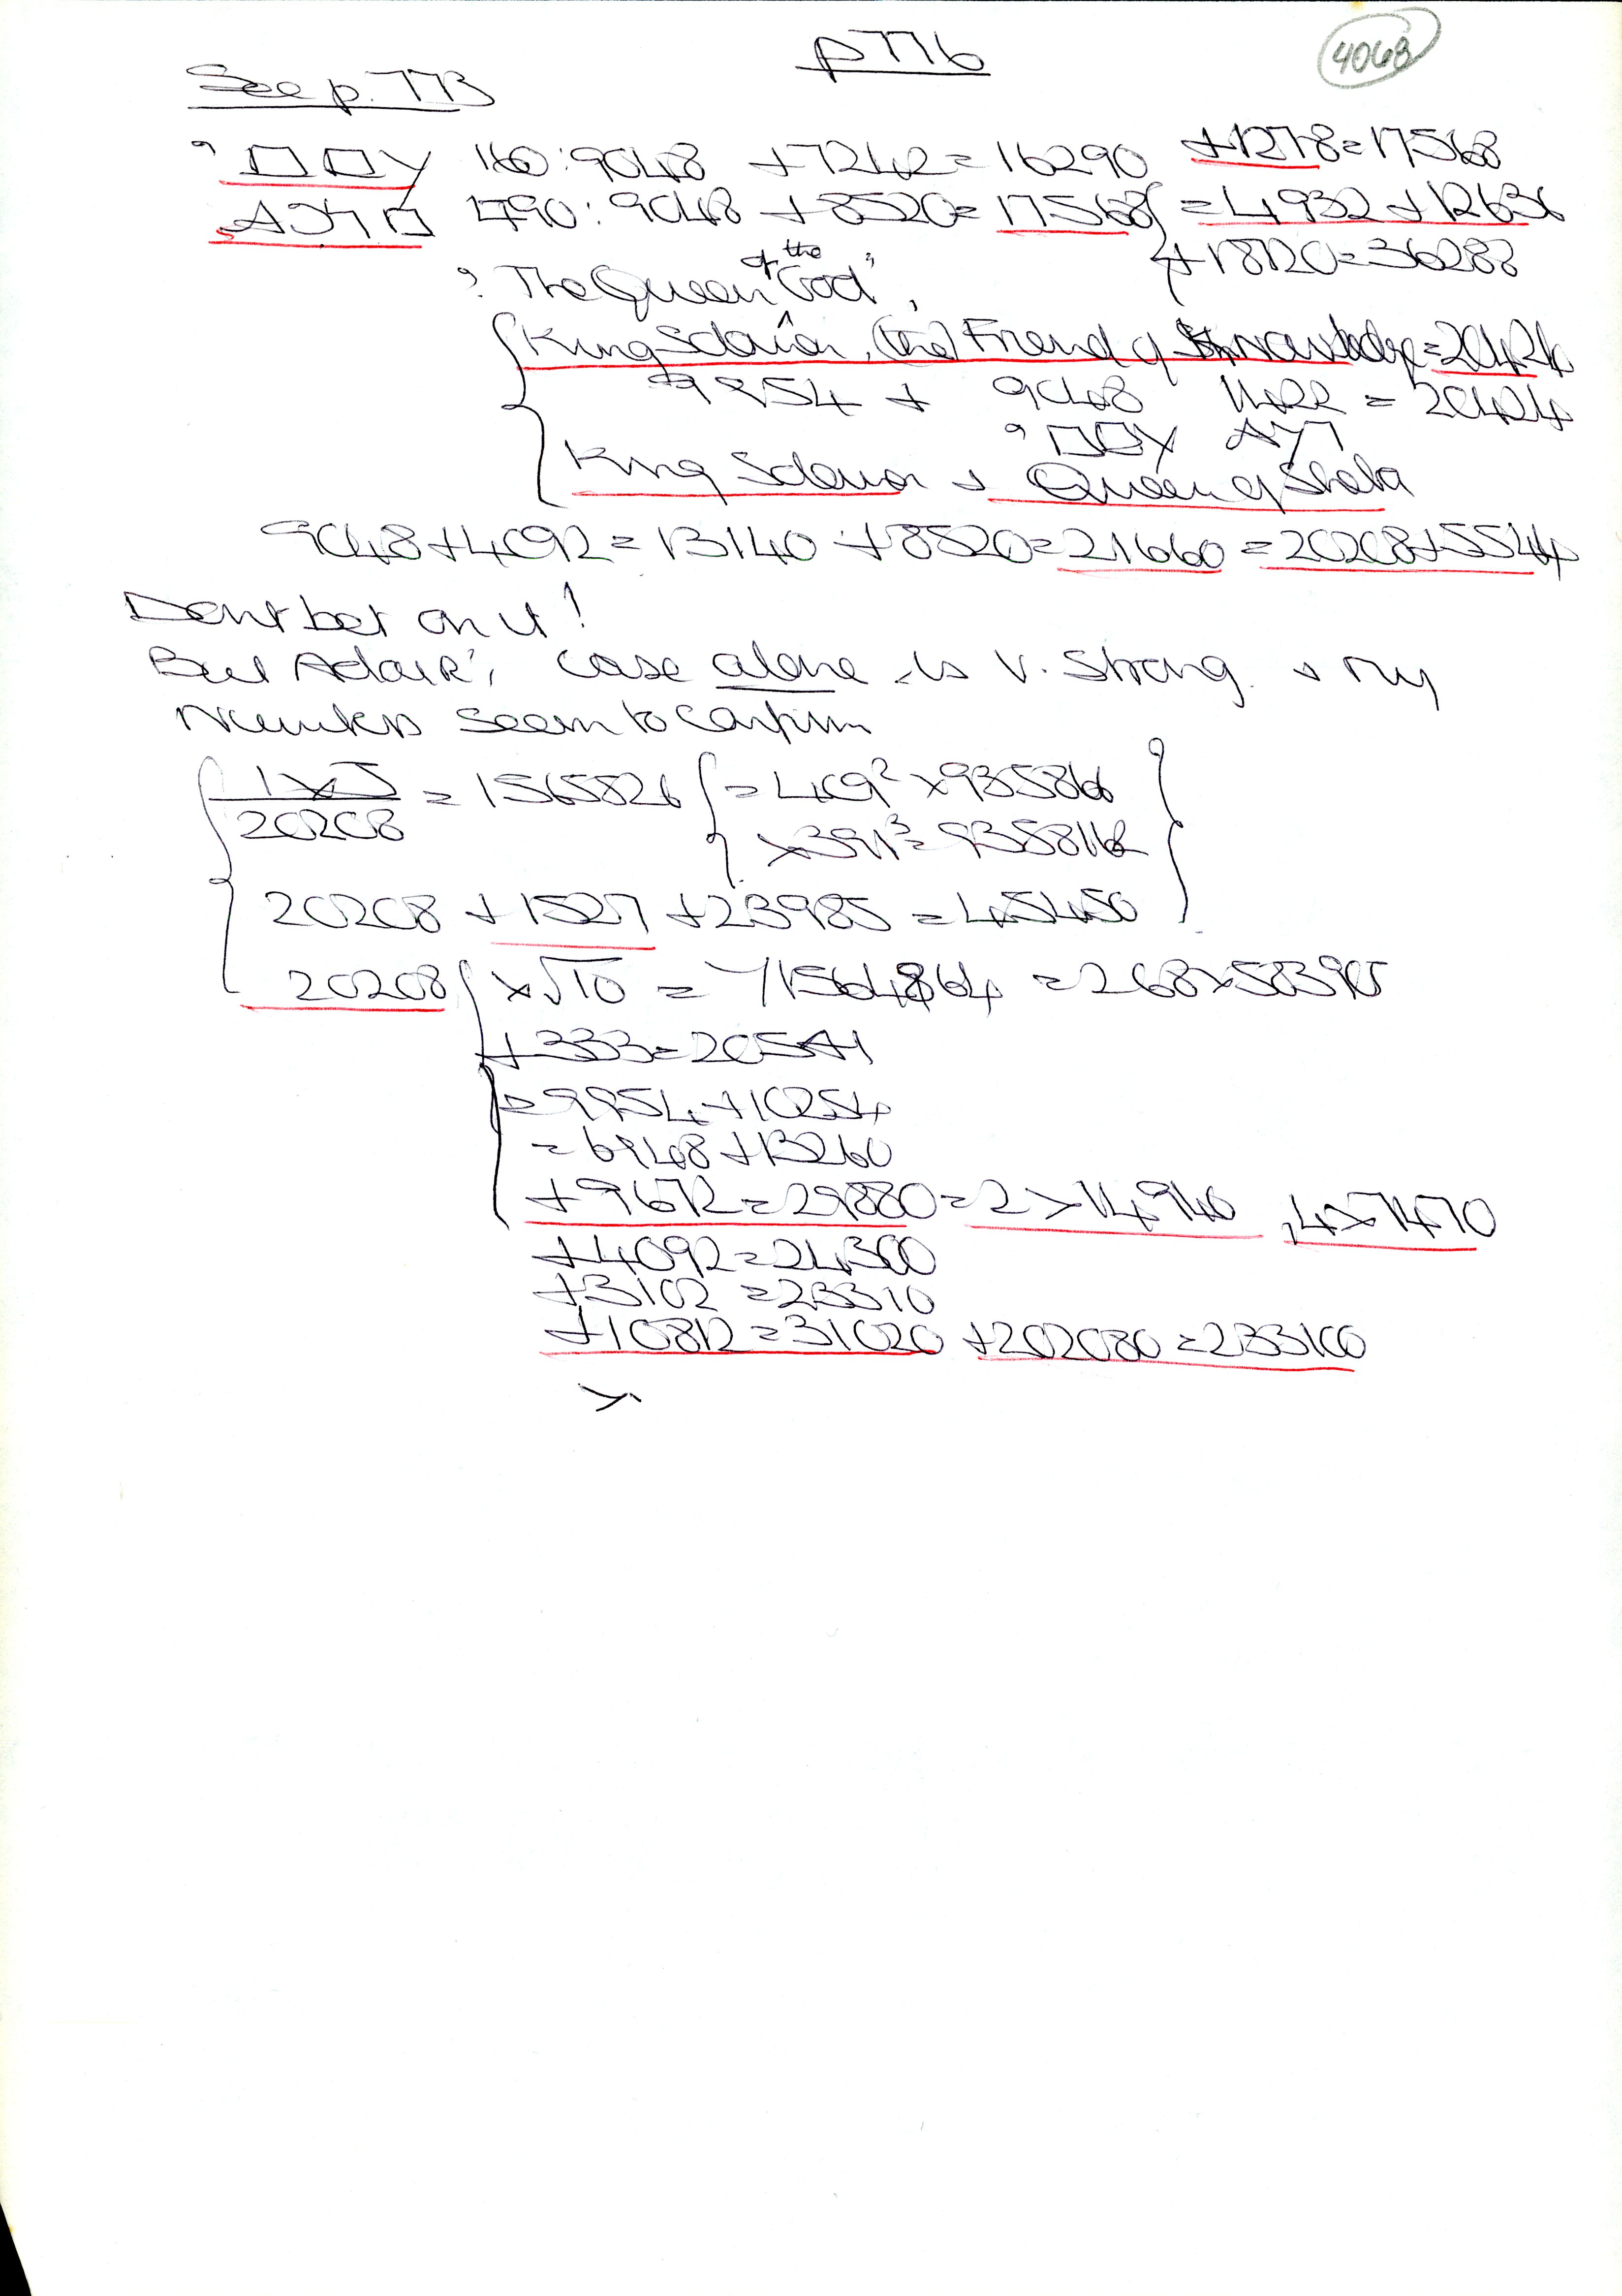 p 776
4068
See p. 773
160: 9048 +7242 = 16290 +1278 = 17568
1790: 9048 + 8520 = 17568 { = 4932 + 12636
+ 18720 = 36288
? "The Queen of the God",
King Solomon, (the) Friend of Knowledge = 20424
9954 + 9048 1422 = 20424
King Solomon + Queen of Sheba
9048 + 4092 = 13140 + 8520 = 21660 = 20208 + 5544
Dont bet on it!
But Adair's case alone is V. Strong & my
Numbers seem to confirm
1 x √5 / 20208 = 1565826 { = 409² x 935866
x 391³ = 9358116
20208 + 1527 + 23985 = 45450
20208 { x √10 = 71564864 = 268 x 583905
+ 333 = 20541
= 9954 + 10254
= 6948 + 13260
+ 9672 = 29880 = 2 x 14940, 4 x 7470
+ 4092 = 24300
+ 3102 = 23310
+ 10812 = 31020 + 202080 = 233100
x